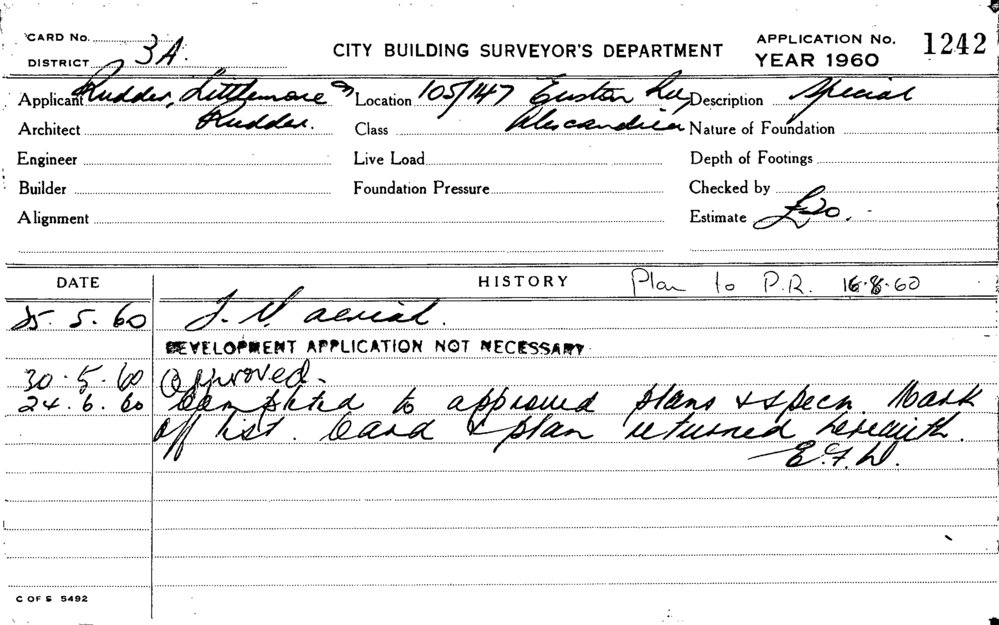 CARD No.
DISTRICT 3A.
CITY BUILDING SURVEYOR'S DEPARTMENT
APPLICATION No. 1242
YEAR 1960
Applicant Rudder, Littlemore &
Location 105/147 Euston Rd,
Description Special
Architect Rudder.
Class Alexandria
Nature of Foundation
Engineer
Live Load
Depth of Footings
Builder
Foundation Pressure
Checked by
Alignment
Estimate £20.-
DATE
HISTORY Plan to P.R. 16.8.60
25.5.60 T.V. aerial.
DEVELOPMENT APPLICATION NOT NECESSARY.
30.5.60 Approved.
24.6.60 Completed to approved plans & specn. Mark
off list. Card & plan returned herewith.
C OF S 5492